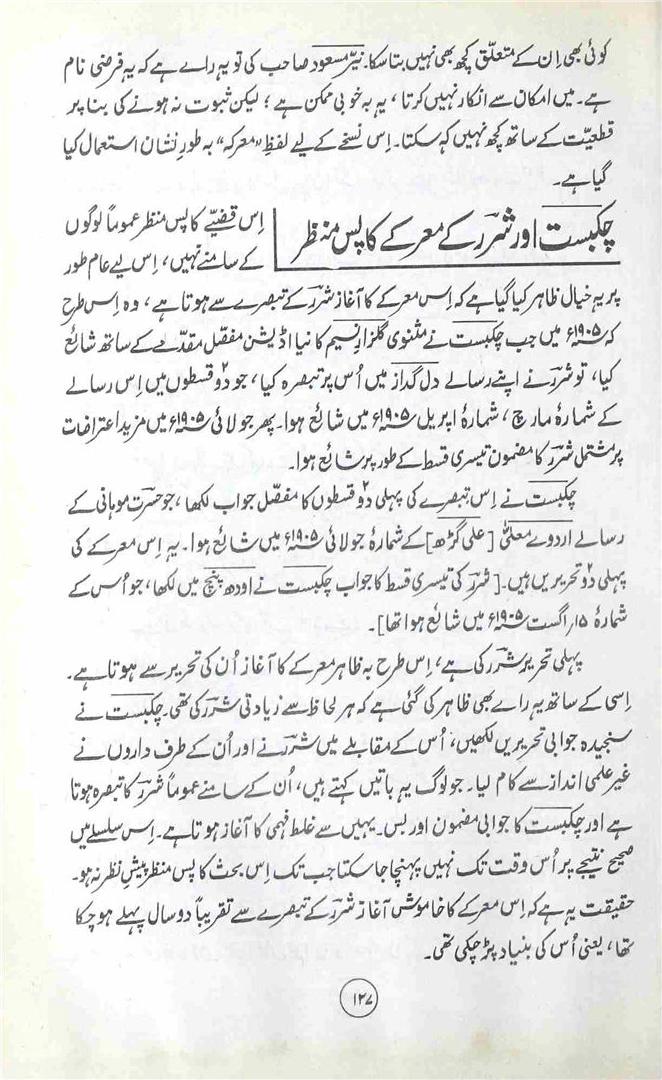 کوئی بھی اِن کے متعلّق کچھ بھی نہیں بتا سکا۔ نیّر مسعود صاحب کی تو یہ راے ہے کہ یہ فرضی نام
ہے۔ میں امکان سے انکار نہیں کرتا، یہ بہ خوبی ممکن ہے؛ لیکن ثبوت نہ ہونے کی بنا پر
قطعیّت کے ساتھ کچھ نہیں کہ سکتا۔ اِس نسخے کے لیے لفظِ "معرکہ" بہ طورِ نشان استعمال کیا
گیا ہے۔
چکبست اور شررؔ کے معرکے کا پس منظر
اِس قضیّے کا پس منظر عموماً لوگوں
کے سامنے نہیں، اِس لیے عام طور
پر یہ خیال ظاہر کیا گیا ہے کہ اِس معرکے کا آغاز شررؔ کے تبصرے سے ہوتا ہے، وہ اِس طرح
کہ ۱۹۰۵ء میں جب چکبست نے مثنوی گلزارِ نسیم کا نیا اڈیشن مفصّل مقدّمے کے ساتھ شائع
کیا، تو شررؔ نے اپنے رسالے دل گداز میں اُس پر تبصرہ کیا، جو دو ۲ قسطوں میں اِس رسالے
کے شمارۂ مارچ، شمارۂ اپریل ۱۹۰۵ء میں شائع ہوا۔ پھر جولائی ۱۹۰۵ء میں مزید اعتراضات
پر مشتمل شررؔ کا مضمون تیسری قسط کے طور پر شائع ہوا۔
چکبست نے اِس تبصرے کی پہلی دو ۲ قسطوں کا مفصّل جواب لکھا، جو حسرت موہانی کے
رسالے اردوے معلّیٰ [علی گڑھ] کے شمارۂ جولائی ۱۹۰۵ء میں شائع ہوا۔ یہ اِس معرکے کی
پہلی دو ۲ تحریریں ہیں۔ [شررؔ کی تیسری قسط کا جواب چکبست نے اودھ پنچ میں لکھا، جو اُس کے
شمارۂ ۱۵؍اگست ۱۹۰۵ء میں شائع ہوا تھا]۔
پہلی تحریر شررؔ کی ہے، اِس طرح بہ ظاہر معرکے کا آغاز اُن کی تحریر سے ہوتا ہے۔
اِسی کے ساتھ یہ راے بھی ظاہر کی گئی ہے کہ ہر لحاظ سے زیادتی شررؔ کی تھی۔ چکبست نے
سنجیدہ جوابی تحریریں لکھیں، اُس کے مقابلے میں شررؔ نے اور اُن کے طرف داروں نے
غیر علمی انداز سے کام لیا۔ جو لوگ یہ باتیں کہتے ہیں، اُن کے سامنے عموماً شررؔ کا تبصرہ ہوتا
ہے اور چکبست کا جوابی مضمون اور بس۔ یہیں سے غلط فہمی کا آغاز ہوتا ہے۔ اِس سلسلے میں
صحیح نتیجے پر اُس وقت تک نہیں پہنچا جا سکتا جب تک اِس بحث کا پس منظر پیشِ نظر نہ ہو۔
حقیقت یہ ہے کہ اِس معرکے کا خاموش آغاز شررؔ کے تبصرے سے تقریباً دو سال پہلے ہو چکا
تھا، یعنی اُس کی بنیاد پڑ چکی تھی۔
۱۲۷